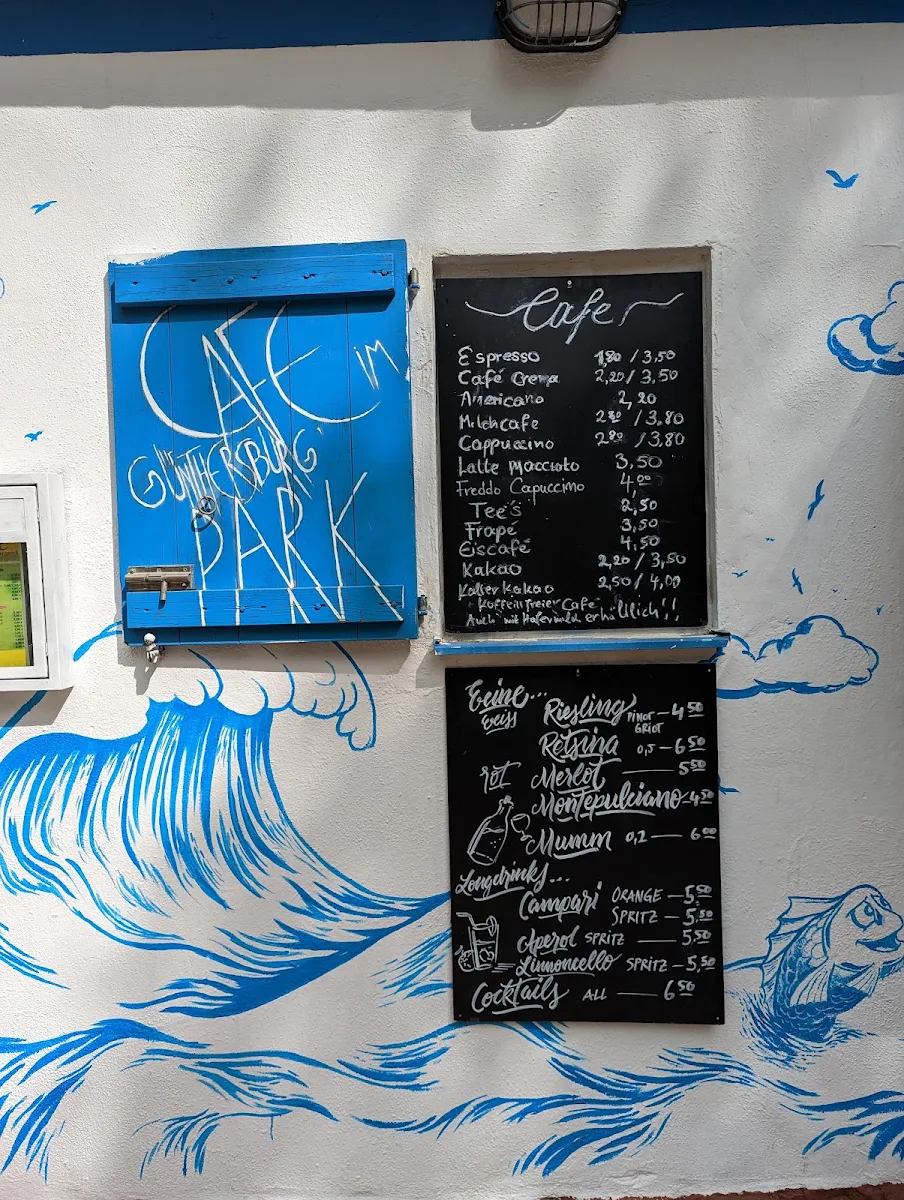 CAFE im
GÜNTHERSBURG
PARK
Cafe
Espresso 1,80 / 3,50
Café Crema 2,20 / 3,50
Americano 2,20
Milchcafe 2 80 / 3,80
Cappuccino 2 80 / 3,80
Latte Macciato 3,50
Freddo Capuccino 4,00
Tee's 2,50
Frapé 3,50
Eiscafé 4,50
Kakao 2,20 / 3,50
Kalter Kakao 2,50 / 4,00
Koffeinfreier Cafe
Auch mit Hafermilch erhältlich!!
Weine...
weiss Riesling PINOT GRIOT — 4 50
Retsina 0,5 — 6 50
rot Merlot — 5 50
Montepulciano — 4 50
Mumm 0,2 — 6 00
Longdrinks...
Campari ORANGE — 5,50
SPRITZ — 5,50
Aperol SPRITZ — 5,50
Limoncello SPRITZ — 5,50
Cocktails ALL — 6 50